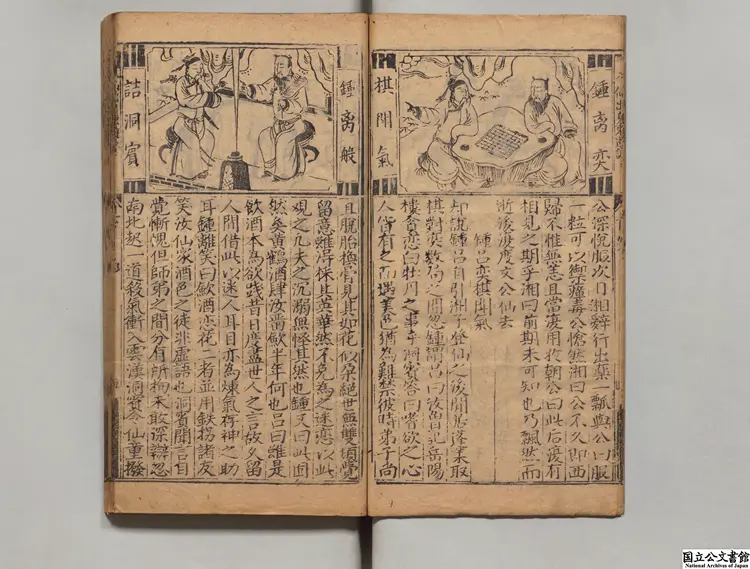 鍾离奕
棋閗氣
公深悅服次日湘辭行出藥一瓢與公曰服
一粒可以禦瘴毒公愴然湘曰公不久即西
歸不惟無恙且當復用於朝公曰此后復有
相見之期乎湘曰前期未可知也乃飄然而
逝後復度文公仙去
鍾呂奕棋閗氣
却說鍾呂自引湘子登仙之後閒居蓬萊取
棋對奕数局之間忽鍾謂呂曰汝昔日於岳陽
樓貪恋白牡丹之事乎洞賓答曰嗜欲之心
人皆有之而遇美色猶為難禁彼時弟子尚
鍾离般
詰洞賓
且脫胎換骨見其如花似孕絕世無雙頃覺
留意雖浔採其英華然不免為之迷恋以此
观之凡夫之沉溺無怪其然也鍾又曰此固
然矣黃鶴酒肆汝嘗歇半年何也呂曰雖是
飲酒本為欲践昔日度盡世人之言故久留
人間借此以迷人耳目亦為煉氣存神之助
耳鍾離笑曰飲酒恋花二者並用鉄拐諸友
笑汝仙家酒色之徒非虛語也洞賓聞言自
覺慚愧但師弟之間分有所拘未敢深辯忽
南北起一道殺氣衝入雲漢洞賓令仙童撥
国立公文書館
National Archives of Japan